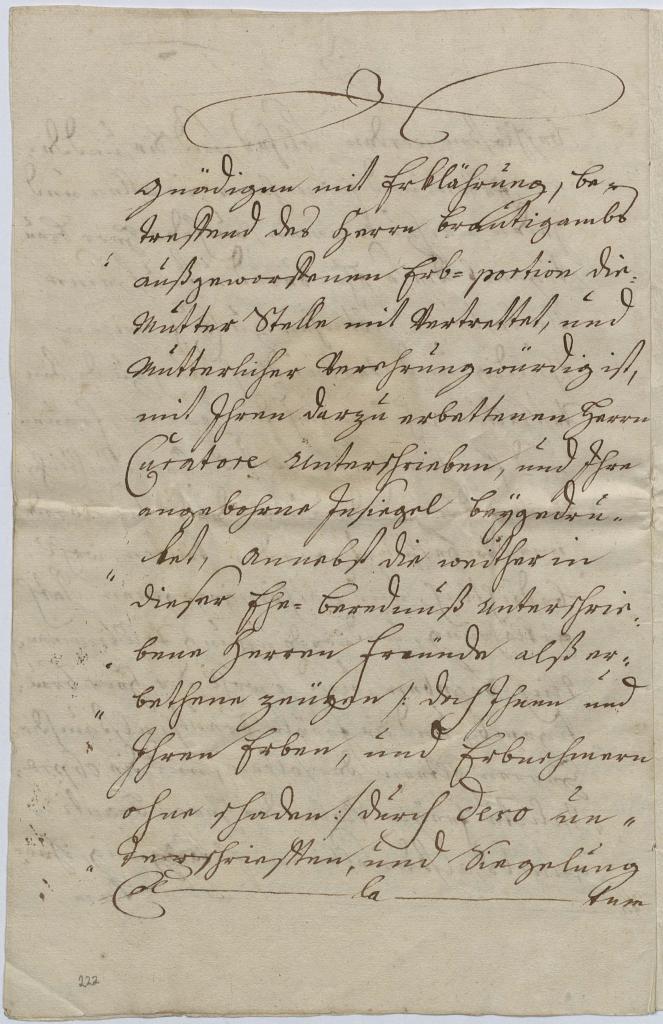 gnädigen mit Erklährung, be-
treffend des Herrn Bräutigambs
außgeworffenen Erb-portion die
Mutter Stelle mit Vertrettet, und
Mütterlicher Verehrung würdig ist,
mit Ihren darzu erbettenen Herrn
Curatore unterschrieben, und Ihre
angebohrne Insiegel beygedru-
ket, annebst die weither in
dieser Ehe-berednuß unterschrie-
bene Herren Freünde alß er-
bethene zeügen /: doch Ihnen und
Ihren Erben, und Erbnehmern
ohne schaden :/ durch dero un-
terschrifften, und Siegelung
la tum
222